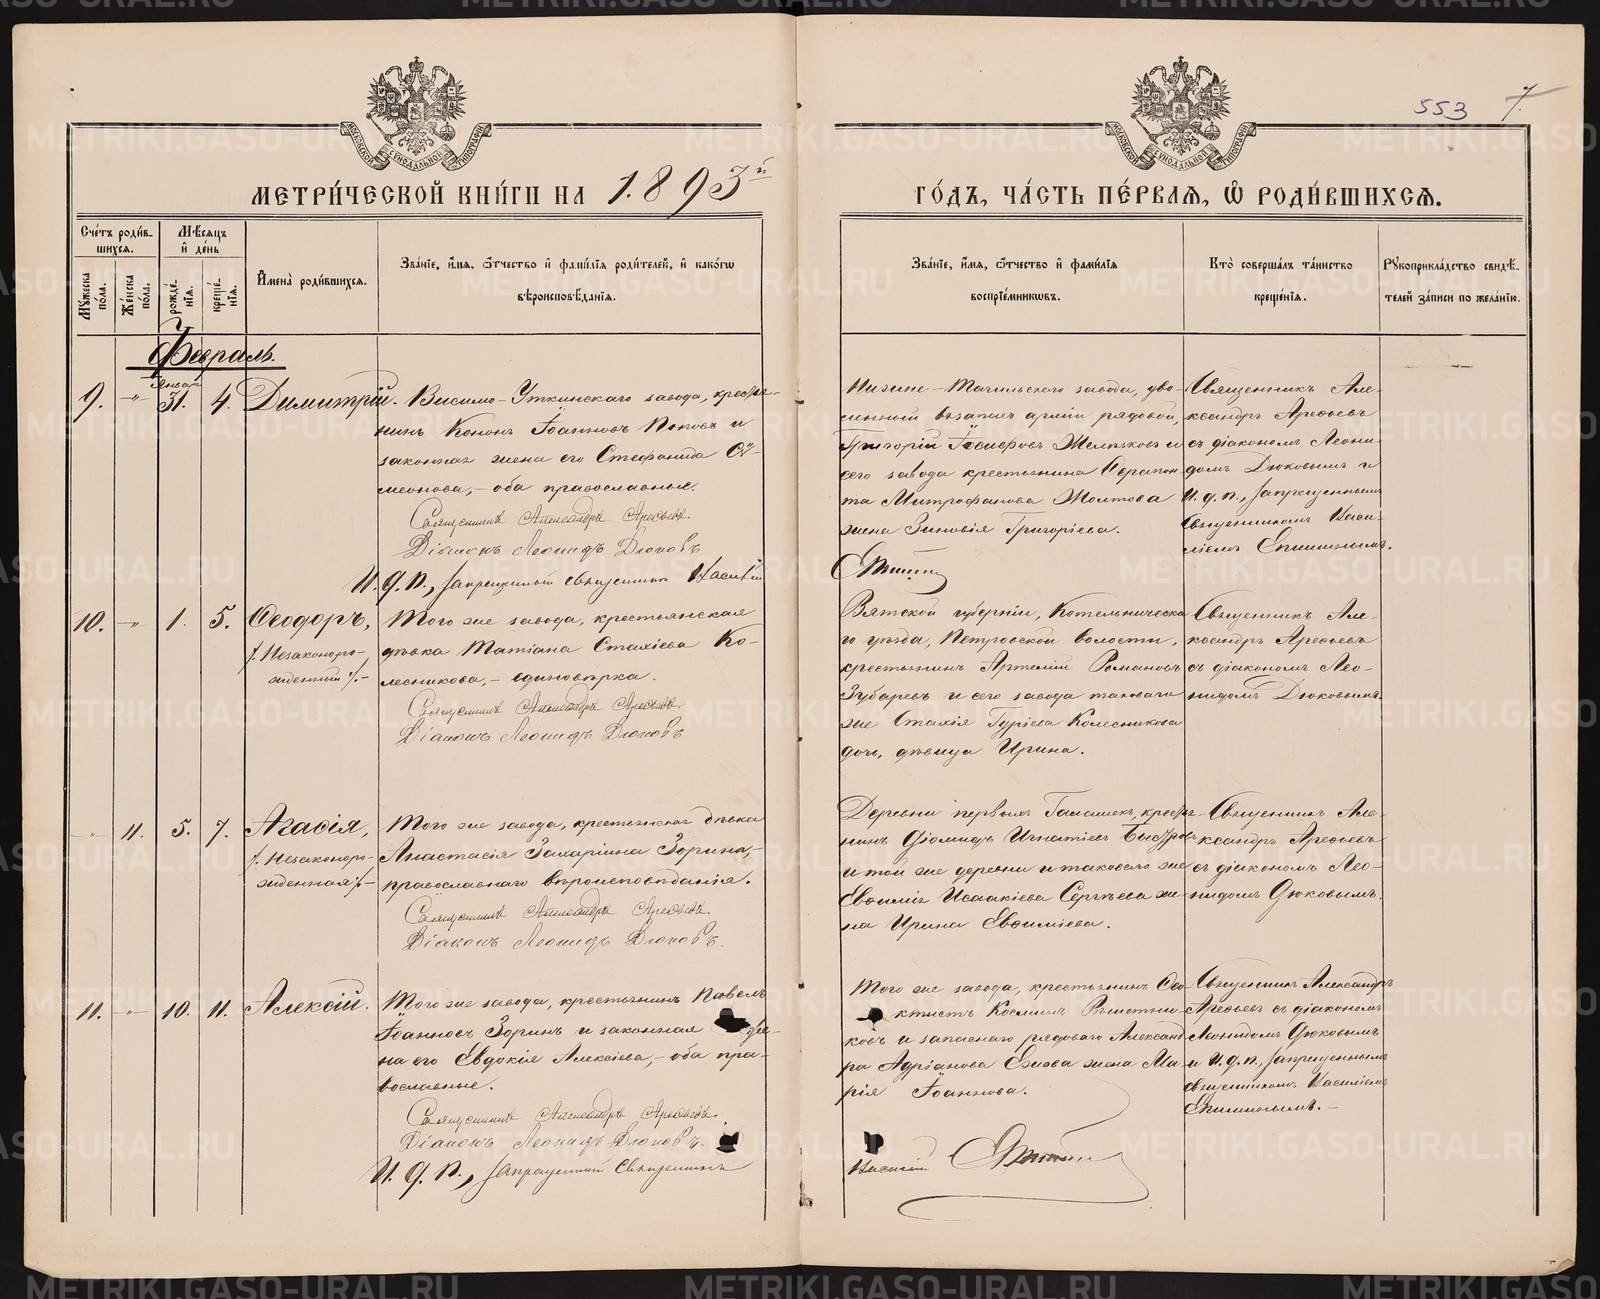 553 7.
МЕТРИ́ЧЕСКОЙ КНИ́ГИ НА 1893й
ГО́ДЪ, ЧА́СТЬ ПЕ́РВАЯ, Ѽ РОДИ́ВШИХСЯ.
Сче́тъ роди́в-
шихся.
Мѣ́сяцъ
и҆ де́нь
Мꙋ́жеска по́ла.
Же́нска по́ла.
рожде́-
нїѧ.
креще́-
нїѧ.
И҆мена̀ роди́вшихся.
Зва́нїе, и҆́мѧ, ѻ҆́тчество и҆ фами́лїѧ роди́телей, и҆ како́гѡ
вѣроисповѣ́данїѧ.
Зва́нїе, и҆́мѧ, ѻ҆́тчество и҆ фами́лїѧ
воспрїе́мникѡвъ.
Кто̀ соверша́лъ та́инство
креще́нїѧ.
Рꙋкоприкла́дство свидѣ́-
телей за́писи по жела́нїю.
Февраль.
9. - „ - Январь 31. 4. Димитрій.
Висимо-Уткинскаго завода, крестья-
нинъ Кононъ Іоанновъ Поповъ и
законная жена его Стефанида Си-
меонова, - оба православные.
Священникъ Александръ Арефьевъ.
Діаконъ Леонидъ Дюковъ
И. д. п., запрещенный священникъ Василій
Нижне-Тагильскаго завода, уво-
ленный въ запасъ арміи рядовой,
Григорій Іосифовъ Желтяковъ и
сего завода крестьянина Ферапон-
та Митрофанова Желтова
жена Зиновія Григоріева.
Священникъ Але-
ксандръ Арефьевъ
съ діакономъ Леони-
домъ Дюковымъ и
и. д. п., запрещеннымъ
священникомъ Васи-
ліемъ
10. - „ - 1. 5. Ѳеодоръ,
/. Незаконоро-
жденный /. -
Того же завода, крестьянская
дѣвка Татіана Стахіева Ко-
лесникова, - единовѣрка.
Священникъ Александръ Арефьевъ.
Діаконъ Леонидъ Дюковъ
Вятской губерніи, Котельническа-
го уѣзда, Петровской волости,
крестьянинъ Артемій Романовъ
Зубаревъ и сего завода таковаго
же Стахія Гуріева Колесникова
дочь, дѣвица Ирина.
Священникъ Але-
ксандръ Арефьевъ
съ діакономъ Лео-
нидомъ Дюковымъ.
- „ - 11. 5. 7. Агаѳія,
/. Незаконоро-
жденная /. -
Того же завода, крестьянская дѣвка
Анастасія Захаріина Зорина, -
православнаго вѣроисповѣданія.
Священникъ Александръ Арефьевъ.
Діаконъ Леонидъ Дюковъ.
Деревни первыхъ Галашекъ, крестья-
нинъ Діомидъ Игнатіевъ
и той же деревни и таковаго же
Евѳимія Исаакіева Сергѣева же-
на Ирина Евѳиміева.
Священникъ Але-
ксандръ Арефьевъ
съ діакономъ Лео-
нидомъ Дюковымъ.
11. - „ - 10. 11. Алексій.
Того же завода, крестьянинъ Павелъ
Іоанновъ Зоринъ и законная же-
на его Евдокія Алексіева, - оба пра-
вославные.
Священникъ Александръ Арефьевъ.
Діаконъ Леонидъ Дюковъ.
И. д. п., запрещенный священникъ
Того же завода, крестьянинъ Ѳео-
ктистъ Космичъ Рѣшетни-
ковъ и запаснаго рядоваго Александ-
ра Адріанова жена Ма-
рія Іоаннова.
Василій
Священникъ Александръ
Арефьевъ съ діакономъ
Леонидомъ Дюковымъ
и и. д. п., запрещеннымъ
священникомъ Василіемъ
METRIKI.GASO-URAL.RU